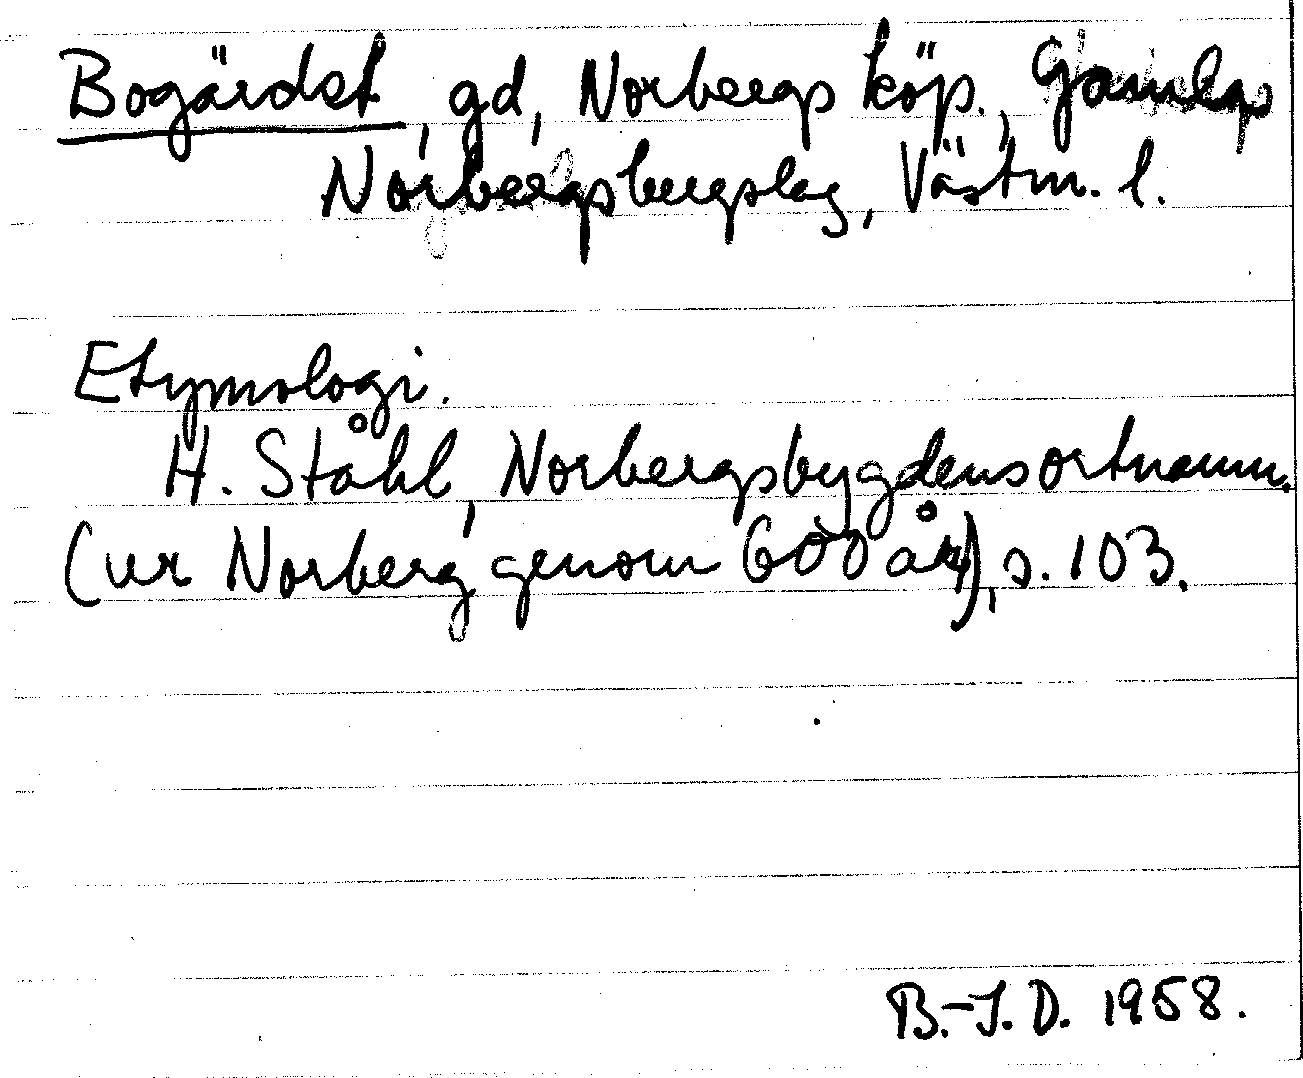 Bogärdet, gd, Norbergs köp., Gamla
Norbergs bergslag, Västm. l.
Etymologi.
H. Ståhl, Norbergsbygdens ortnamn.
(ur Norberg genom 600 år), s. 103.
B.-J. D. 1958.